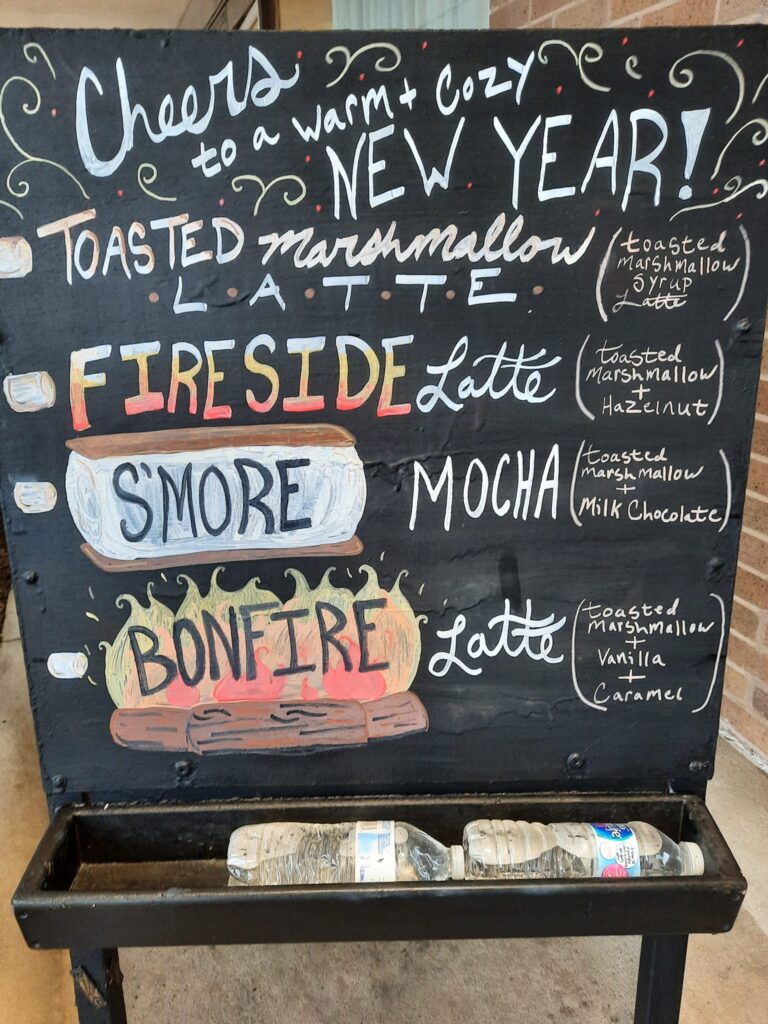 Cheers
to a warm + cozy
NEW YEAR!
TOASTED marshmallow
L·A·T·T·E
(toasted
marshmallow
syrup
Latte)
FIRESIDE Latte
(toasted
marshmallow
+
Hazelnut)
S'MORE MOCHA
(toasted
marshmallow
+
Milk Chocolate)
BONFIRE Latte
(toasted
marshmallow
+
Vanilla
+
Caramel)